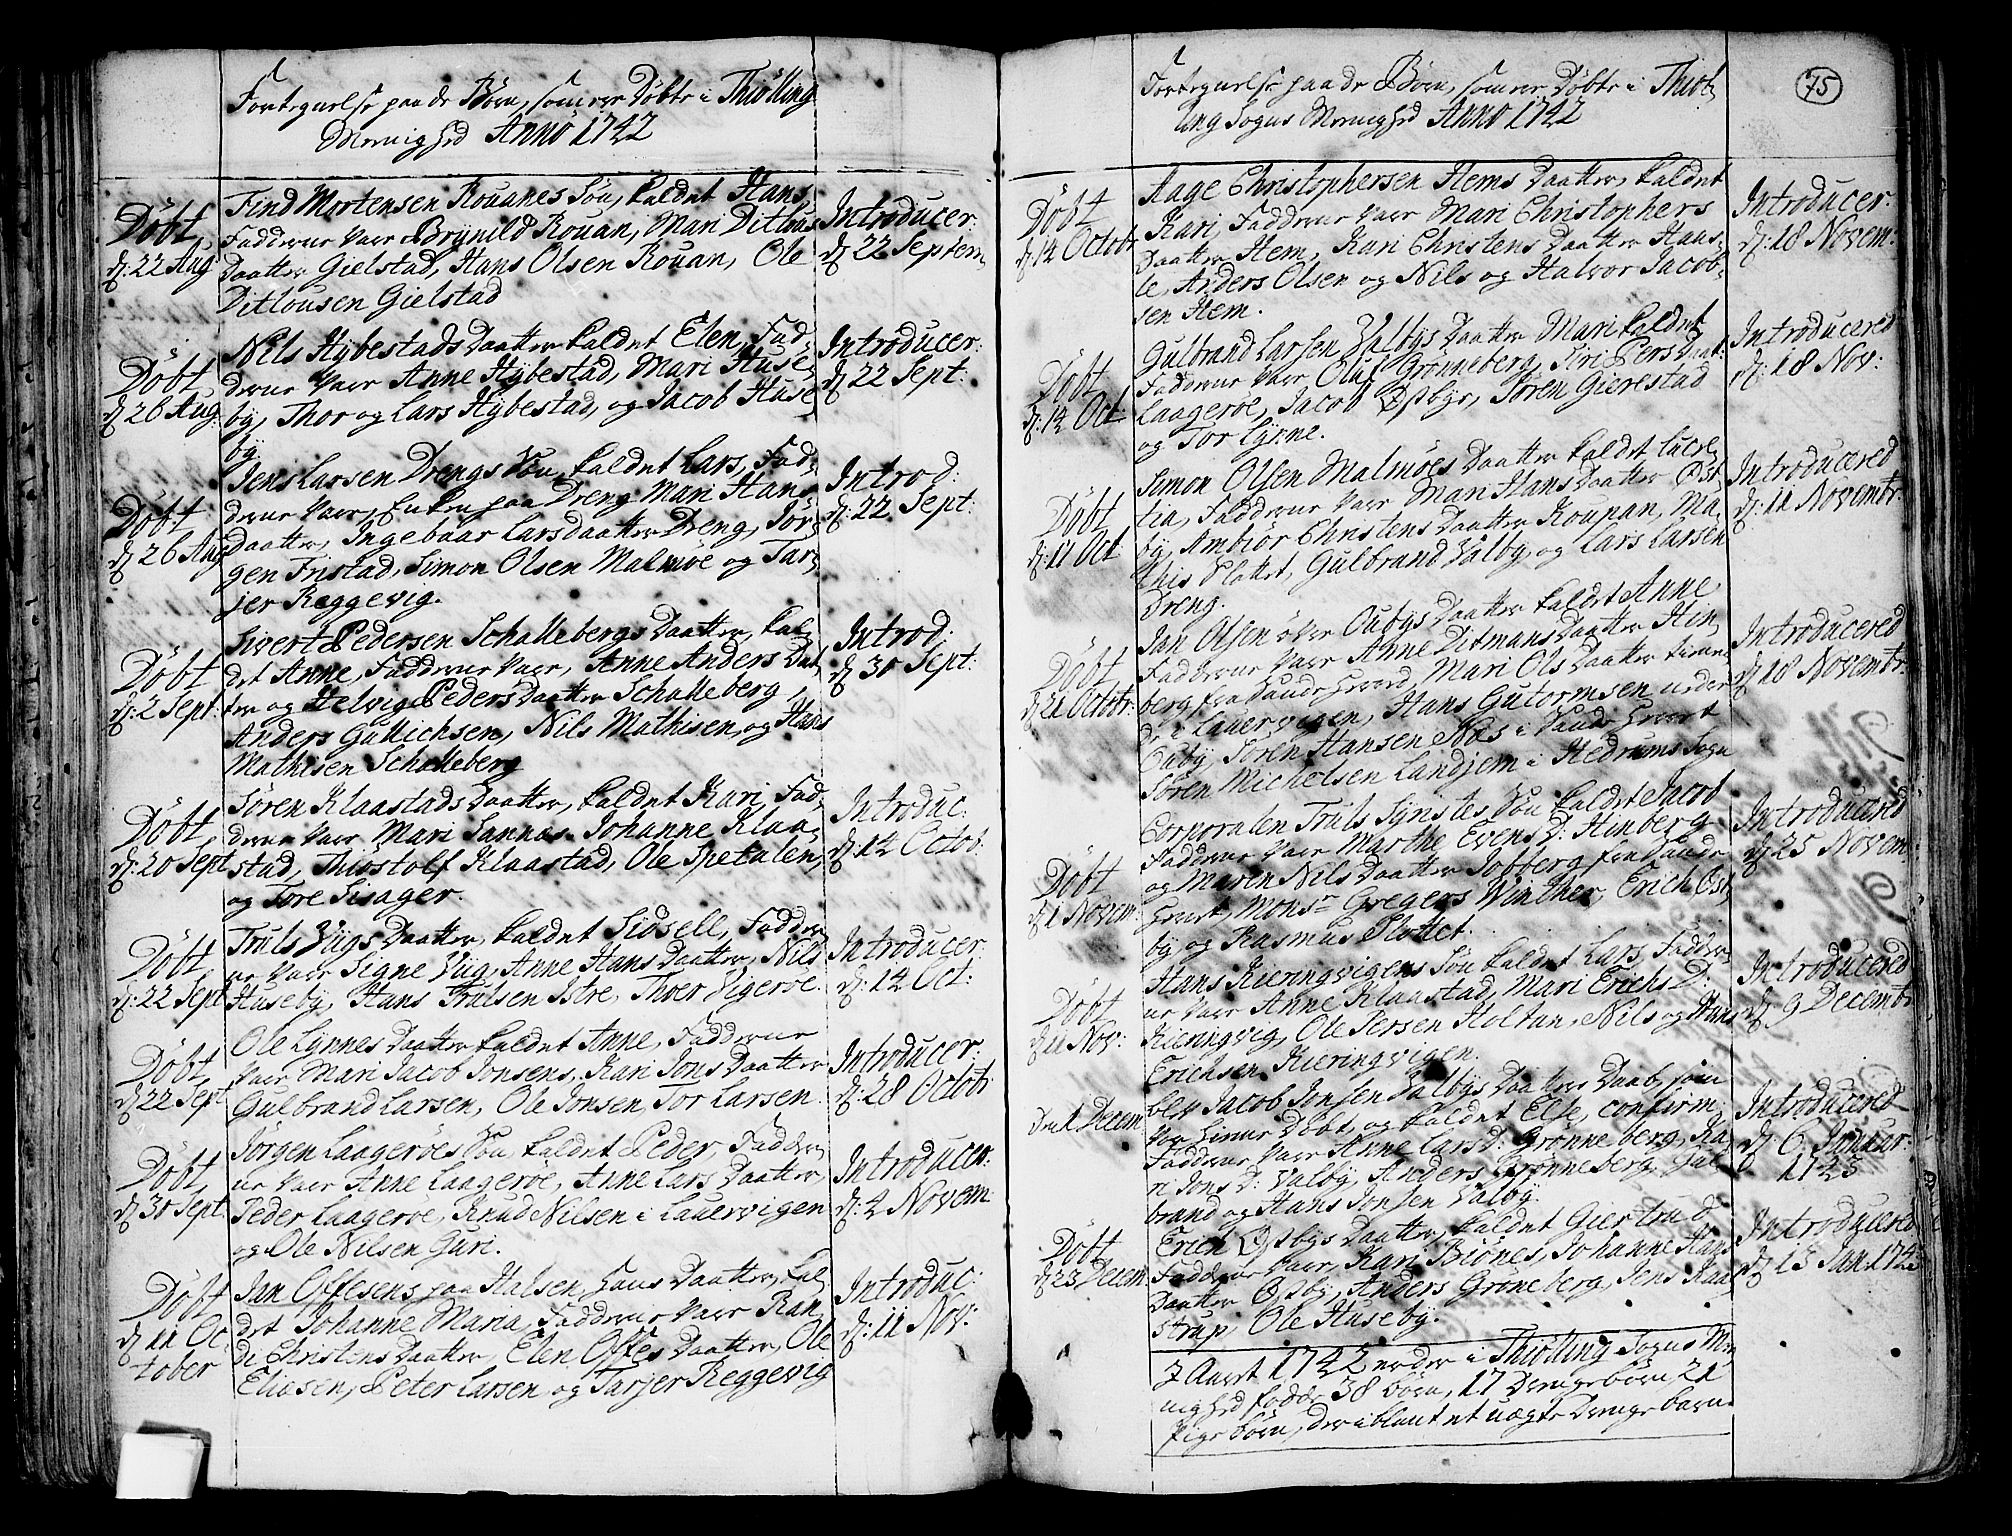 Fortegnelse paa de Børn, som ere Døbte i Thiølling
Menighed Anno 1742
Døbt
d: 22 Aug
Find Mortensen Rouanes Søn, kaldet Hans,
Fadderne vare Brynild Rouan, Mari Ditlous
Daatter Gielstad, Hans Olsen Rouan, Ole
Ditlousen Gielstad
Introducer:
d: 22 Septem
Døbt
d: 26 Aug:
Nils Hybestads Daatter kaldet Elen, Fad-
derne vare Anne Hybestad, Mari Huse-
by, Thor og Lars Hybestad, og Jacob Huse
by.
Introducer:
d: 22 Sept:
Døbt
d: 26 Aug
Jens Larsen Drengs Søn, kaldet Lars, Fad-
derne vare, Enken paa Dreng, Mari Hans
daatter, Ingebaar Larsdaatter Dreng, Jør-
gen Fristad, Simon Olsen Malmøe og Tar-
jer Reggevig.
Introd:
d: 22 Sept:
Døbt
d: 2 Sept:
Sivert Pedersen Schallebergs Daatter, kal-
det Anne, Fadderne vare, Anne Anders Dat-
ter og Helvig Peders Daatter Schalleberg,
Anders Gullichsen, Nils Mathisen, og Hans
Mathisen Schalleberg
Introd:
d: 30 Sept:
Døbt
d: 20 Sept
Søren Klaastads Daatter, kaldet Kari, Fad-
derne vare Mari Sannas, Johanne Klaa-
stad, Thiostolf Klaastad, Ole Spetalen,
og Tore Sisager.
Introduc:
d: 14 Octob:
Døbt
d: 22 Sept
Truls Viigs Daatter, kaldet Sidsell, Fadder-
ne vare Signe Viig, Anne Hans Daatter, Nils
Huseby, Hans Trulsen Istre, Thoer Vigerøe.
Introducer:
d: 14 Oct:
Døbt
d: 22 Sept
Ole Lynnes Daatter kaldet Anne, Fadderne
vare Mari Jacob Jonsens, Kari Jons Daatter
Gulbrand Larsen, Ole Jonsen, Tor Larsen.
Introducer:
d: 28 Octob:
Døbt
d: 30 Sept
Jørgen Laagerøes Søn kaldet Peder, Fadder-
ne vare Anne Laagerøe, Anne Lars Daatter,
Peder Laagerøe, Knud Nilsen i Lauervigen
og Ole Nilsen Guri.
Introducer:
d: 4 Novem:
Døbt
d: 11 Oc-
tober
Jan Offesens paa Halsen, hans Daatter, kal-
det Johanne Maria, Fadderne vare Ran-
di Christens Daatter, Elen Offes Daatter, Ole
Eliasen, Peter Larsen og Tarjer Reggevig
Introduc:
d: 11 Nov:
75
Fortegnelse paa de Børn, som ere Døbte i Thiøl-
ling Sogns Menighed Anno 1742
Døbt
d: 14 Octobr
Aage Christophersen Hems Daatter, kaldet
Kari, Fadderne vare Mari Christophers
Daatter Hem, Kari Christens Daatter Haas-
le, Anders Olsen og Nils og Halvor Jacob-
sen Hem.
Introducer:
d: 18 Novem:
Døbt
d: 14 Oct:
Gulbrand Larsen Valbys Daatter Mari kaldet
Fadderne vare Oluf Grønneberg, Siri Pers Daat:
Laagerøe, Jacob Østbye, Søren Gierestad
og Tor Lynne.
Introducered
d: 18 Nov:
Døbt
d: 11 Oct:
Simon Olsen Malmøes Daatter kaldet Lucre-
tia, Fadderne vare Mari Hans Daatter Øst-
by, Ambiør Christens Daatter Roupan, Ma-
this Slottet, Gulbrand Valby, og Lars Larsen
Dreng.
Introducered
d: 11 Novembr:
Døbt
d: 21 Octobr:
Jan Olsen øvre Oubys Daatter kaldet Anne
Fadderne vare Anne Ditmans Daatter Hin-
berg fra Sande, Mari Ols Daatter
i Lauervigen, Hans Gutormsen nedre
Ouby, Søren Hansen Næs i Sande
Søren Michelsen Landjem i Hedrums Sogn
Introducered
d: 18 Novembr:
Døbt
d: 1 Novem:
Corporalen Truls Synstes Søn kaldet Jacob
Fadderne vare Marthe Evens D: Hinberg
og Maren Nils Daatter Jobberg fra Sande
Monsr Gregers Winther, Erich Øst-
by og Rasmus Slottet.
Introducered
d: 25 Novem:
Døbt
d: 11 Nov:
Hans Kieringvigens Søn kaldet Lars, Fadder-
ne vare Anne Klaastad, Mari Erichs D:
Kieringvig, Ole Persen Holtan, Nils og Hans
Erichsen Kieringvigen.
Introducered
d: 9 Decembr
Den 1 Decem
blev Jacob Jonsen Valbys Daatters Daab, som
var hieme Døbt, og kaldet Else, confirm:
Fadderne vare Anne Lars D: Grønneberg, Ka-
ri Jons D: Valby, Anders Grønneberg, Gul-
brand og Hans Jonsen Valby.
Introducered
d: 6 Januar:
1743
Døbt
d: 23 Decem:
Erich Østbys Daatter, kaldet Giertrud
Fadderne vare, Kari Biønes, Johanne Hans
Daatter Østby, Anders Groneberg, Jens Kaa-
strup, Ole Huseby.
Introducered
d: 13 Jan: 1743
I Aaret 1742 ere der i Thiølling Sogns Me-
nighed fødde 38 børn, 17 Drengebørn, 21
Pigebørn, der iblant et uægte Drengebarn